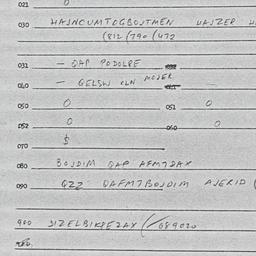 021 0
030 HAJNCUMTOGBOJTMEN UAJZER
(812/790/472
031 — QAP PODOLPE
040 — GELSW OLN MOJER
050 0 051 0
052 0 060 0
070 $
080 BOJDIM QAP AFMTDAX
090 QZZ QAFMTBOJDIM AJERID (
900 JIZELBIKPEZAY (/089020